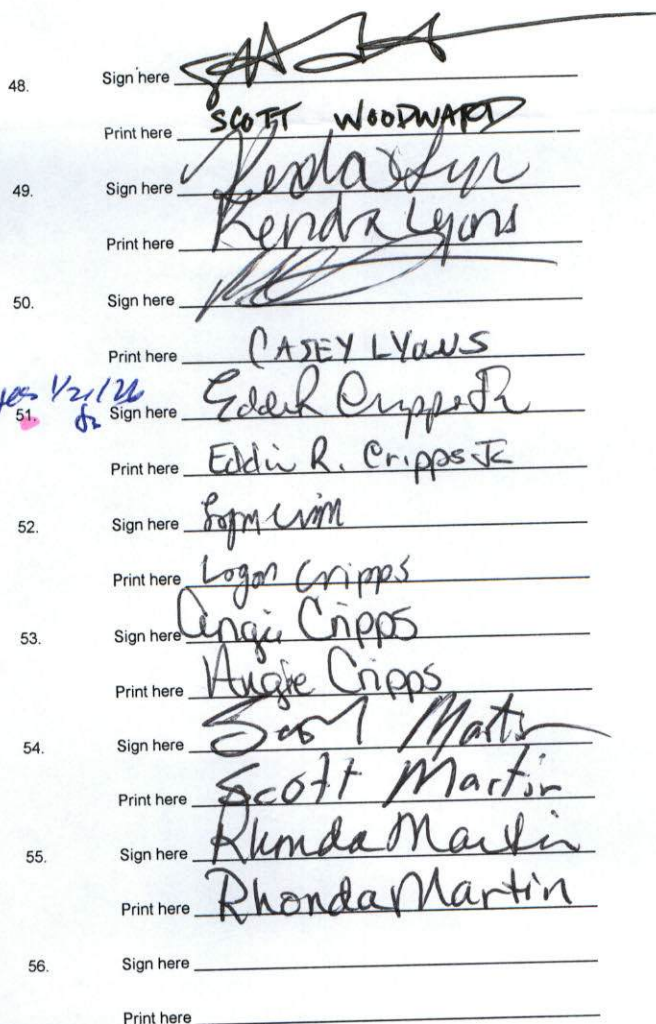 48. Sign here
Print here SCOTT WOODWARD
49. Sign here Kenda Lyn
Print here Kendra Lyons
50. Sign here
Print here CASEY LYONS
1/21/26
51. Sign here Eddie R Cripps Jr
Print here Eddie R. Cripps Jr
52. Sign here
Print here Logan Cripps
53. Sign here Angie Cripps
Print here Angie Cripps
54. Sign here Scott Martin
Print here Scott Martin
55. Sign here Rhonda Martin
Print here Rhonda Martin
56. Sign here
Print here